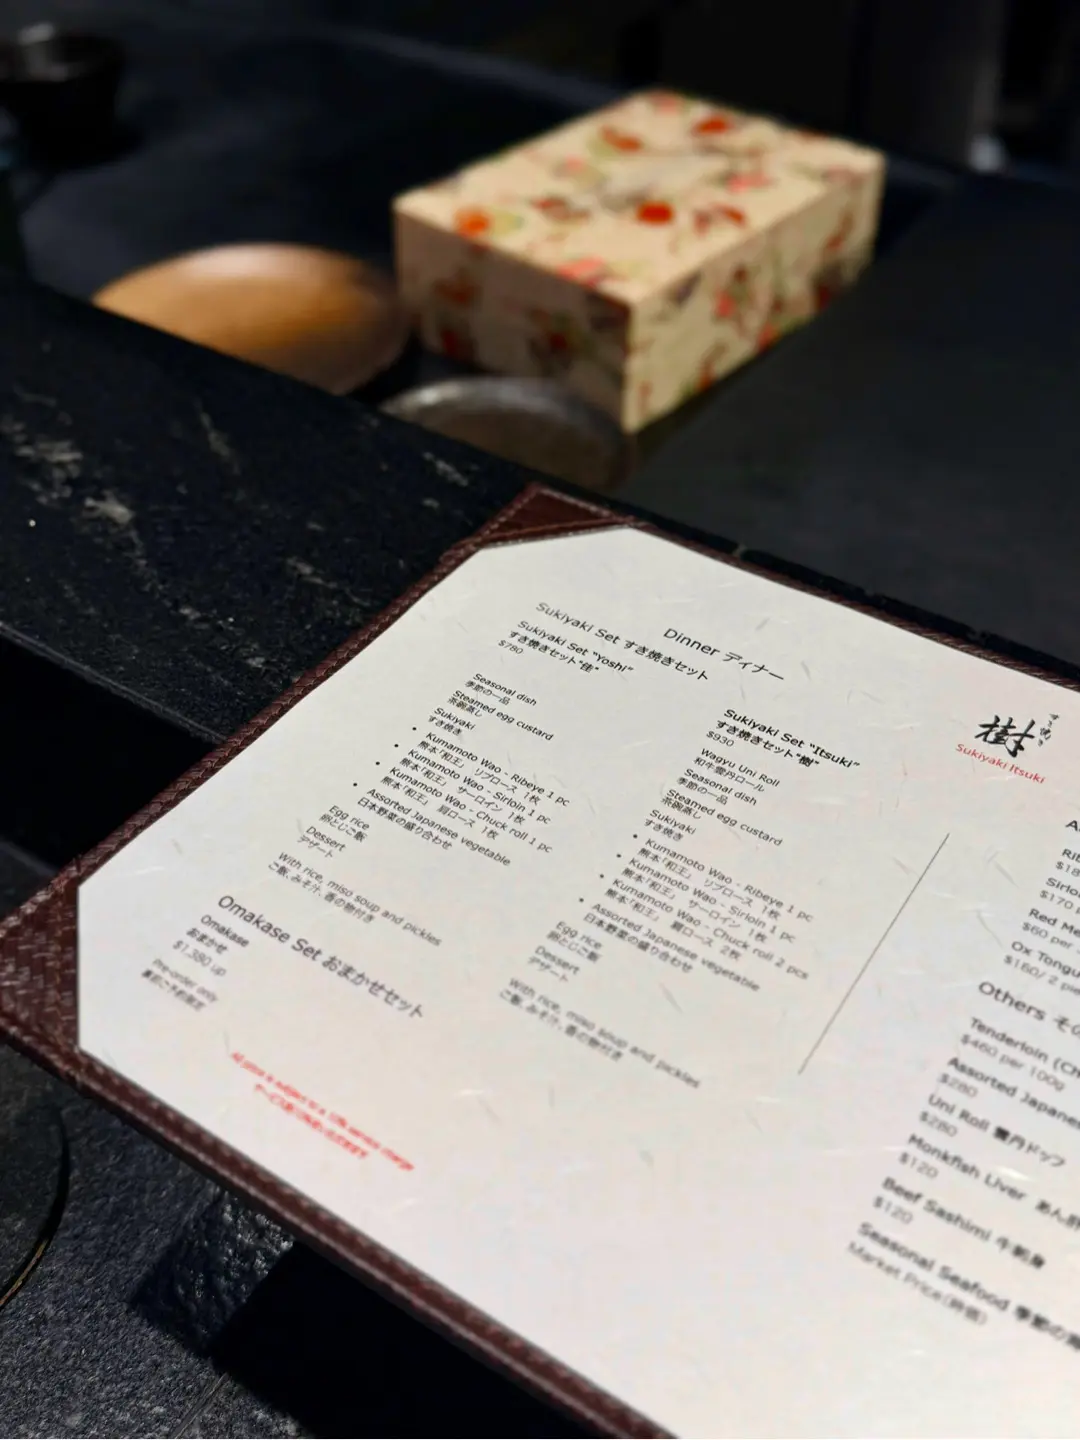 Dinner ディナー
Sukiyaki Set すき焼きセット
Sukiyaki Set "Yoshi"
すき焼きセット"佳"
$780
Seasonal dish
季節の一品
Steamed egg custard
茶碗蒸し
Sukiyaki
すき焼き
• Kumamoto Wao - Ribeye 1 pc
熊本「和王」 リブロース 1枚
• Kumamoto Wao - Sirloin 1 pc
熊本「和王」 サーロイン 1枚
• Kumamoto Wao - Chuck roll 1 pc
熊本「和王」 肩ロース 1枚
• Assorted Japanese vegetable
日本野菜の盛り合わせ
Egg rice
卵とじご飯
Dessert
デザート
With rice, miso soup and pickles
ご飯、みそ汁、香の物付き
Omakase Set おまかせセット
Omakase
おまかせ
$1,380 up
Pre-order only
事前ご予約限定
All price is subject to a 10% service charge
Sukiyaki Set "Itsuki"
すき焼きセット"樹"
$930
Wagyu Uni Roll
和牛雲丹ロール
Seasonal dish
季節の一品
Steamed egg custard
茶碗蒸し
Sukiyaki
すき焼き
• Kumamoto Wao - Ribeye 1 pc
熊本「和王」 リブロース 1枚
• Kumamoto Wao - Sirloin 1 pc
熊本「和王」 サーロイン 1枚
• Kumamoto Wao - Chuck roll 2 pcs
熊本「和王」 肩ロース 2枚
• Assorted Japanese vegetable
日本野菜の盛り合わせ
Egg rice
卵とじご飯
Dessert
デザート
With rice, miso soup and pickles
ご飯、みそ汁、香の物付き
すき焼き
樹
Sukiyaki Itsuki
A
Rib
$18
Sirlo
$170
Red Me
$60 per
Ox Tongu
$160/ 2 pie
Others その
Tenderloin (Ch
$460 per 100g
Assorted Japanes
$280
Uni Roll
$280
Monkfish Liver あん肝
$120
Beef Sashimi 牛刺身
$120
Seasonal Seafood 季節の海
Market Price(時価)